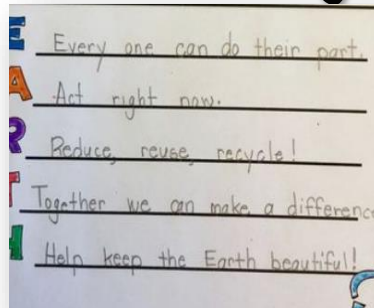 E Every one can do their part.
A Act right now.
R Reduce, reuse, recycle!
T Together we can make a difference
H Help keep the Earth beautiful!